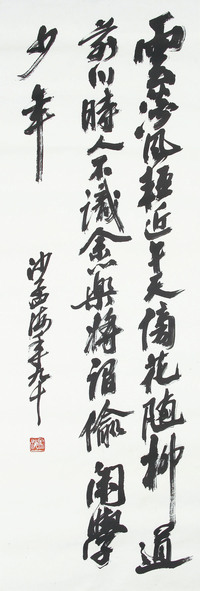 雲淡風輕近午天傍花隨柳過
前川時人不識余心樂將謂偷閑學
少年
沙孟海年九十